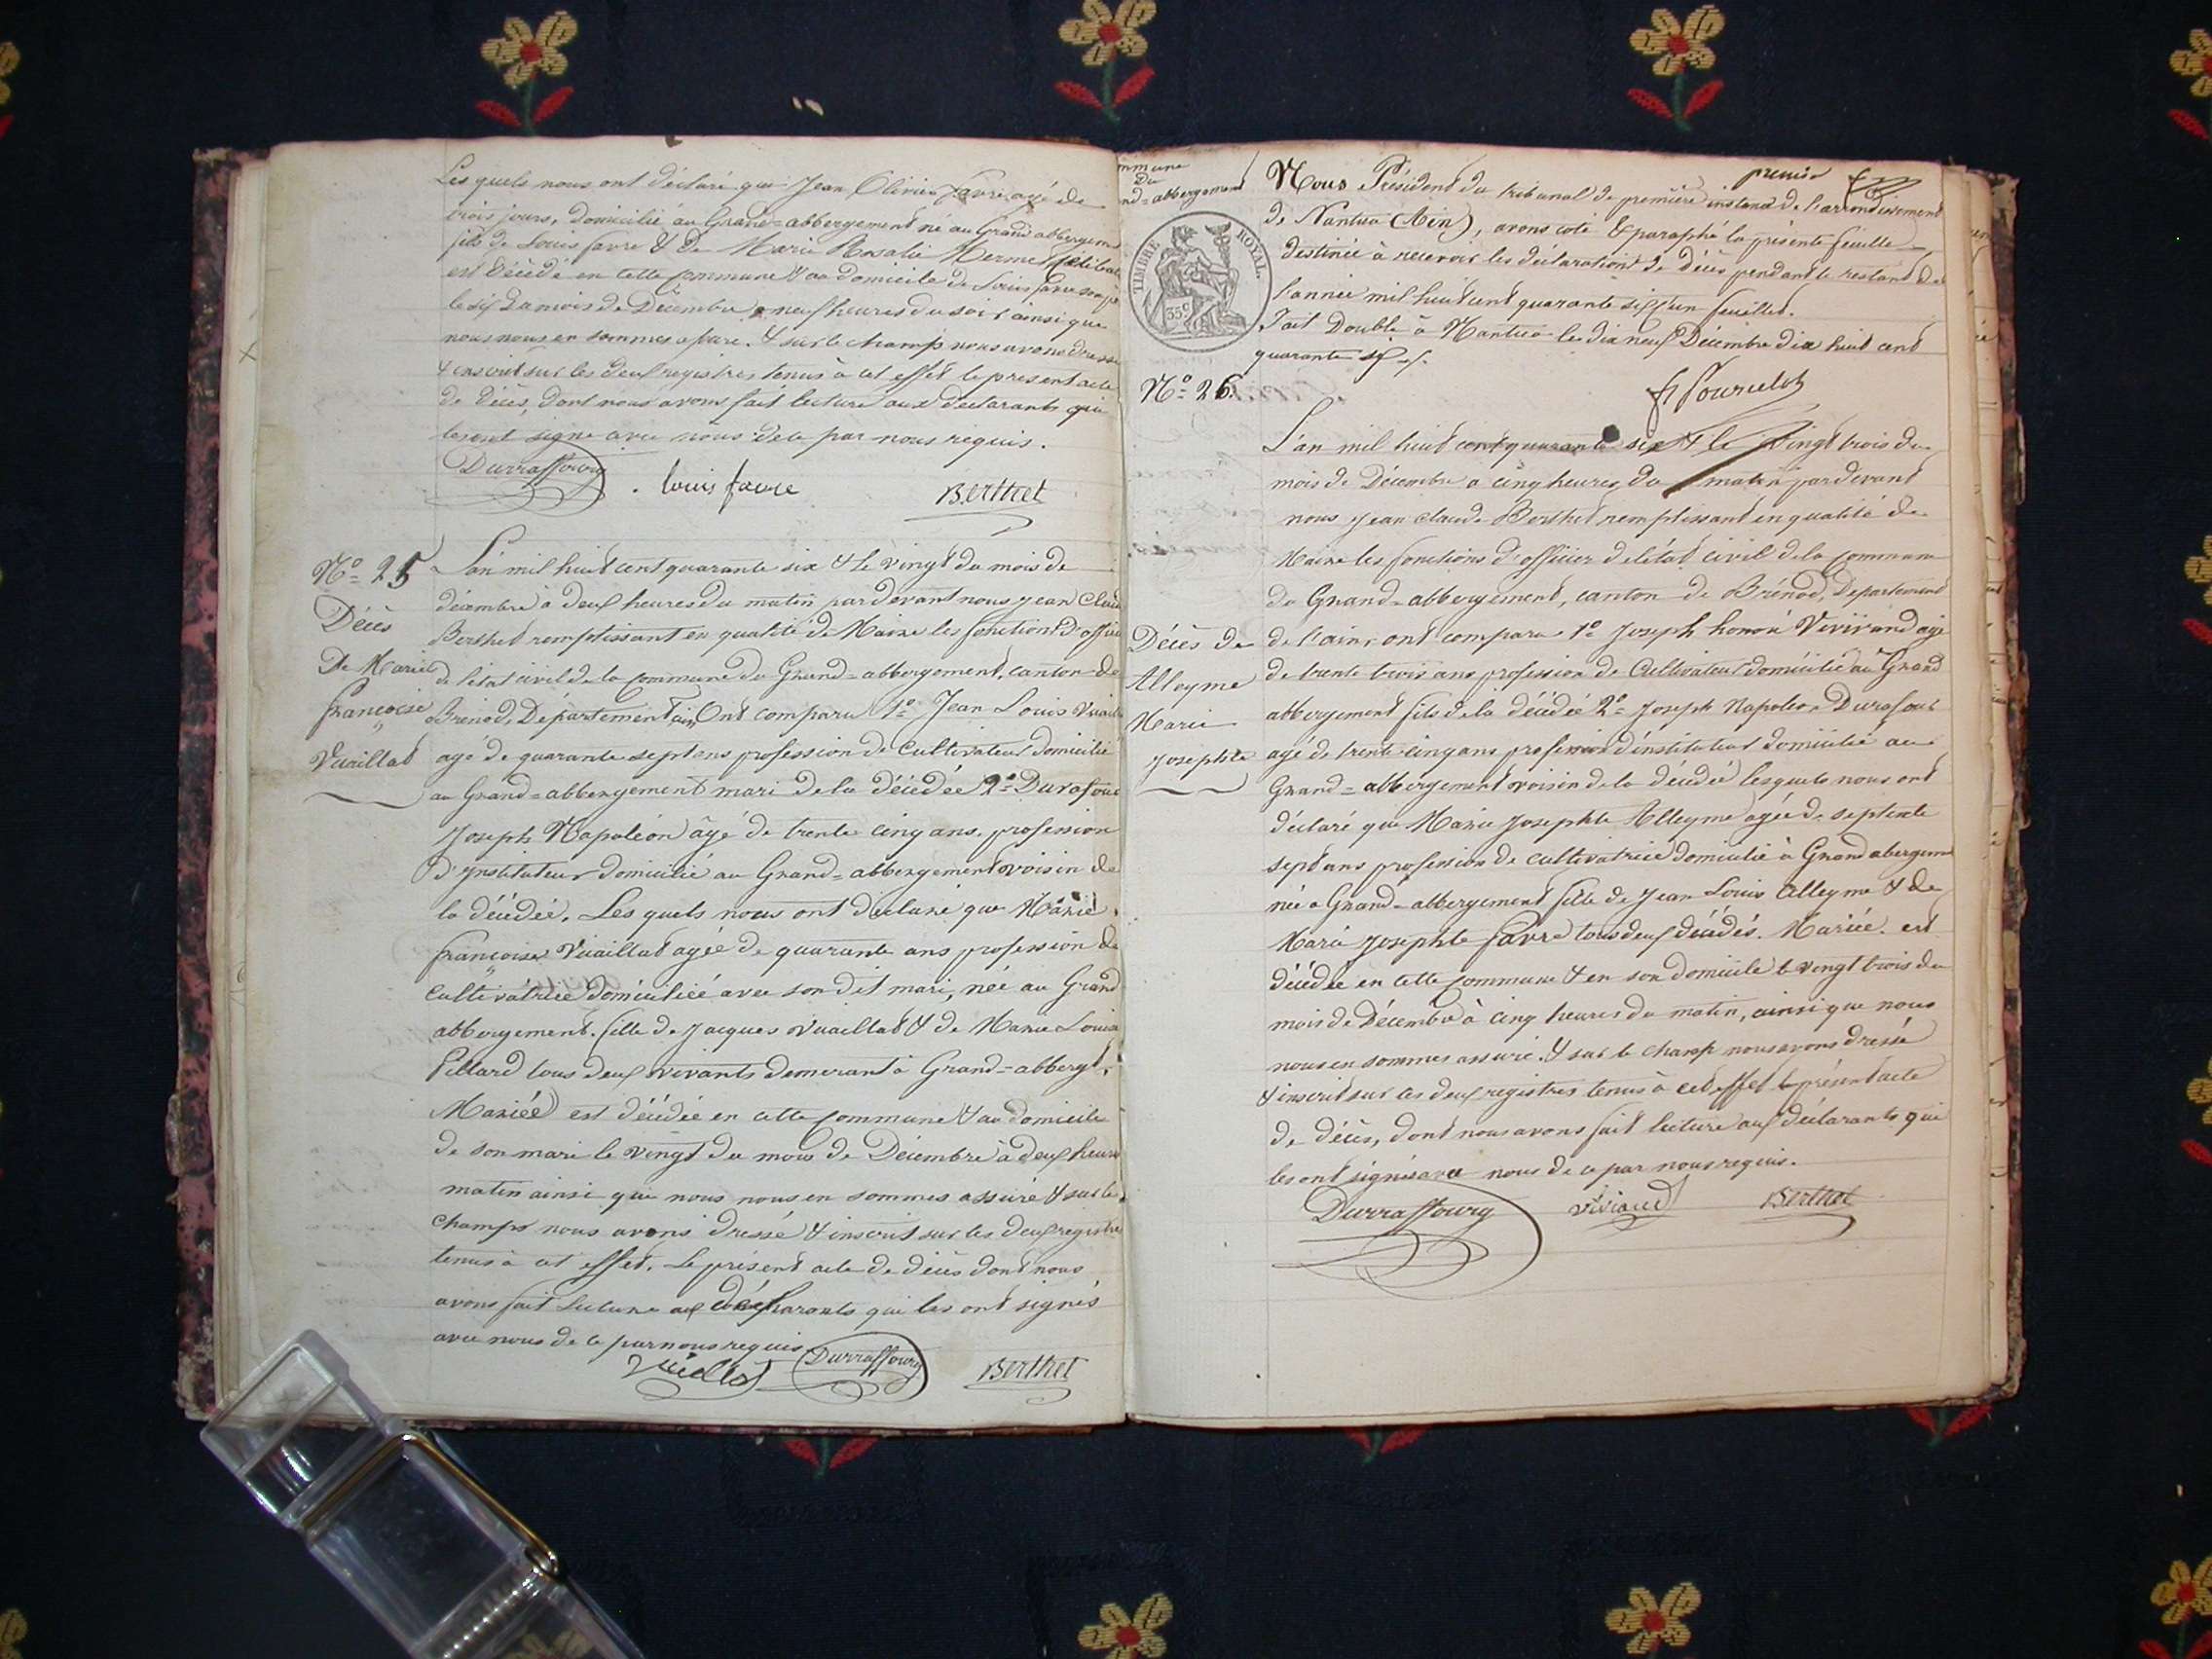 Les quels nous ont déclaré que Jean Olivier favre agé de
trois jours, domicilié au Grand=abbergement né au Grand abbergem
fils de Louis favre & de Marie Rosalie Mermet
est décédé en cette Commune & au domicile de Louis favre son
le six du mois de Décembre neuf heures du soir ainsi que
nous nous en sommes . & sur le champ nous avons dressé
& inscrit sur les deux registres tenus à cet effet le présent acte
de décès, dont nous avons fait lecture aux declarants qui
les ont signé avec nous de ce par nous requis.
Durraffourg louis favre Berthet
N° 25
Décès
De Marie
françoise
Vuaillat
L'an mil huit cent quarante six & le vingt du mois de
décembre à deux heures du matin par devant nous jean Claude
Berthet remplissant en qualité de Maire les fonctions d'officier
de l'état civil de la Commune du Grand=abbergement, canton de
Brénod, Département Ain, Ont comparu 1° Jean Louis Vuaillat
agé de quarante sept ans profession de Cultivateur domicilié
au Grand=abbergement mari de la décédée 2° Durafour
Joseph Napoléon âgé de trente cinq ans, profession
d'Instituteur domicilié au Grand=abbergement voisin de
la décédée. Les quels nous ont déclaré que Marie
françoise Vuaillat agée de quarante ans profession de
Cultivatrice domiciliée avec son dit mari, née au Grand
abbergement. fille de Jacques Vuaillat & de Marie Louise
Pillard tous deux vivants demerant à Grand=abbergt,
Mariée est décédée en cette Commune & au domicile
de son mari le vingt du mois de Décembre à deux heures
matin ainsi que nous nous en sommes assuré & sur le
champs nous avons dressé & inscrit sur les deux registre
tenus à cet effet. Le présent acte de décès dont nous
avons fait lecture aux déclarants qui les ont signés
avec nous de ce par nous requis
Durraffourg Berthet
mmune
du
nd=abbergement
premier
Nous Président du tribunal de première instance de l'arrondissement
de Nantua (Ain), avons coté & paraphé la présente feuille
destinée à recevoir les déclarations de décès pendant le restant de
l'année mil huit cent quarante six un feuillet.
Fait Double à Nantua le dix neuf Décembre dix huit cent
quarante six
TIMBRE ROYAL.
35c
N° 26
L'an mil huit cent quarante six & le vingt trois du
mois de Décembre à cinq heures du matin par devant
nous jean Claude Berthet remplissant en qualité de
Maire les fonctions d'officier de l'état civil de la Commune
du Grand=abbergement, canton de Brénod, Département
Décès de
Alleyme
Marie
josephte
de l'ain, ont comparu 1° Joseph honoré Vivirand agé
de trente trois ans profession de Cultivateur domicilié au Grand
abbergement fils de la décédée 2° Joseph Napoléon Durafour
agé de trente cinq ans profession d'instituteur domicilié au
Grand=abbergement voisin de la décédée lesquels nous ont
déclaré que Marie Josephte Alleyme agée de septente
sept ans profession de cultivatrice domicilié à Grand abergeme
née à Grand=abbergement fille de Jean Louis Alleyme & de
Marie Josephte favre tous deux décédés. Mariée. est
décédée en cette Commune & en son domicile le vingt trois du
mois de Décembre à cinq heures du matin, ainsi que nous
nous en sommes assuré. & sur le champ nous avons dressé
& inscrit sur les deux registres tenus à cet effet le présent acte
de décès, dont nous avons fait lecture aux déclarants qui
les ont signés avec nous de ce par nous requis.
Durraffourg Berthet